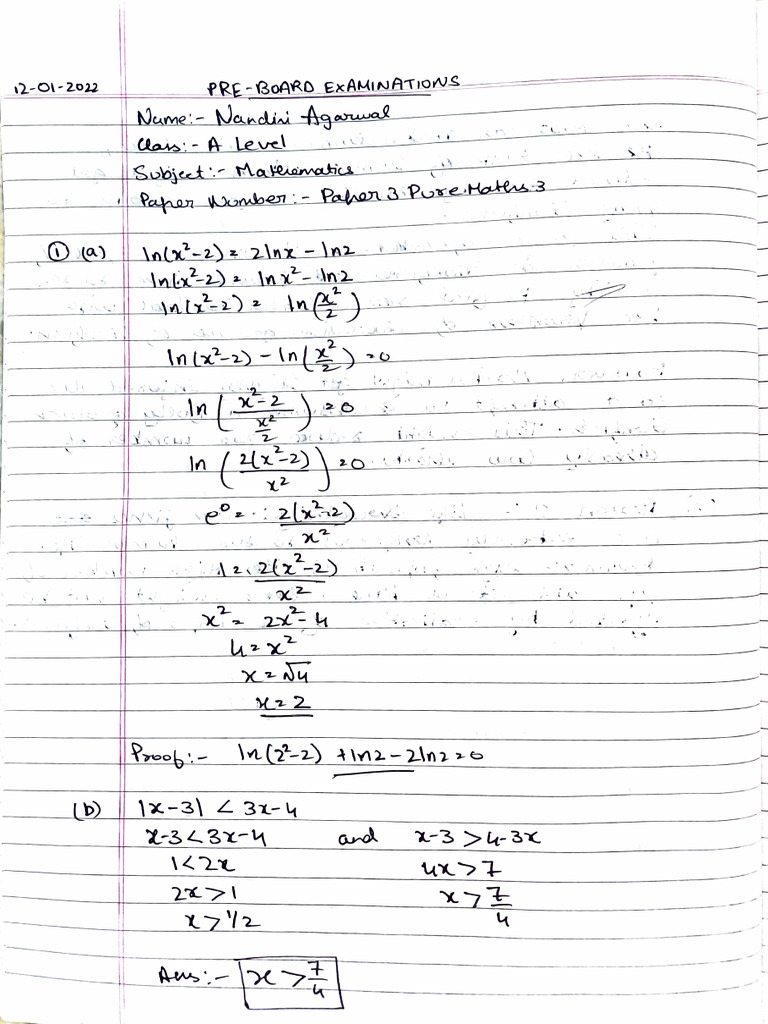 12-01-2022 PRE-BOARD EXAMINATIONS
Name:- Nandini Agarwal
Class:- A Level
Subject:- Mathematics
Paper Number:- Paper 3 Pure Maths 3
① (a) ln(x²-2) = 2lnx - ln2
ln(x²-2) = lnx² - ln2
ln(x²-2) = ln(x²/2)
ln(x²-2) - ln(x²/2) = 0
ln((x²-2)/(x²/2)) = 0
ln(2(x²-2)/x²) = 0
e⁰ = 2(x²-2)/x²
1 = 2(x²-2)/x²
x² = 2x²-4
4 = x²
x = √4
x = 2
Proof:- ln(2²-2) + ln2 - 2ln2 = 0
(b) |x-3| < 3x-4
x-3 < 3x-4 and x-3 > 4-3x
1 < 2x 4x > 7
2x > 1 x > 7/4
x > 1/2
Ans:- x > 7/4